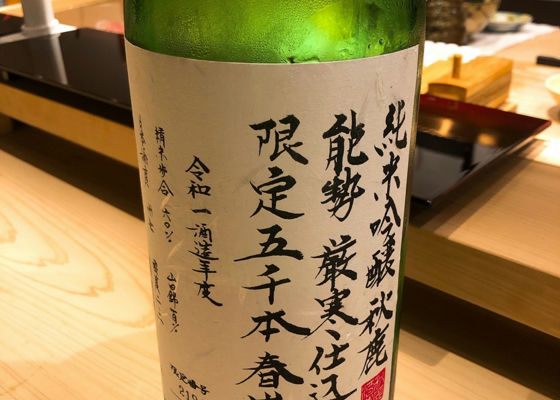 純米吟醸 秋鹿
能勢 厳寒仕込
限定五千本 春
令和一酒造年度
山田錦百%
精米歩合 六〇%
限定番号
210